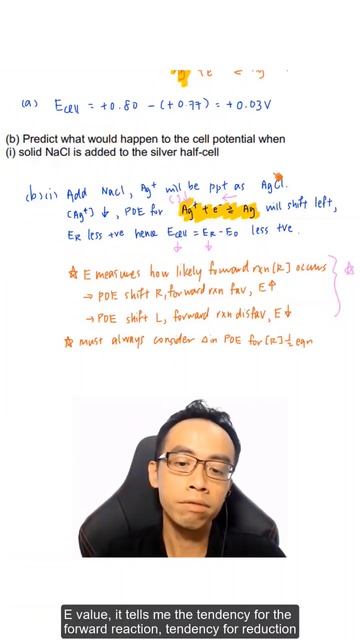 Ag⁺ + e⁻ ⇌ Ag
(a) Ecell = +0.80 − (+0.77) = +0.03V
(b) Predict what would happen to the cell potential when
(i) solid NaCl is added to the silver half-cell
(b)(i) Add NaCl, Ag⁺ will be ppt as AgCl.
[Ag⁺] ↓, POE for Ag⁺ + e⁻ ⇌ Ag will shift left,
ER less +ve hence Ecell = ER − EO less +ve.
☆ E measures how likely forward rxn [R] occurs
⇒ POE shift R, forward rxn fav, E↑
→ POE shift L, forward rxn disfav, E↓
☆ must always consider Δ in POE for [R] ½ eqn
E value, it tells me the tendency for the
forward reaction, tendency for reduction